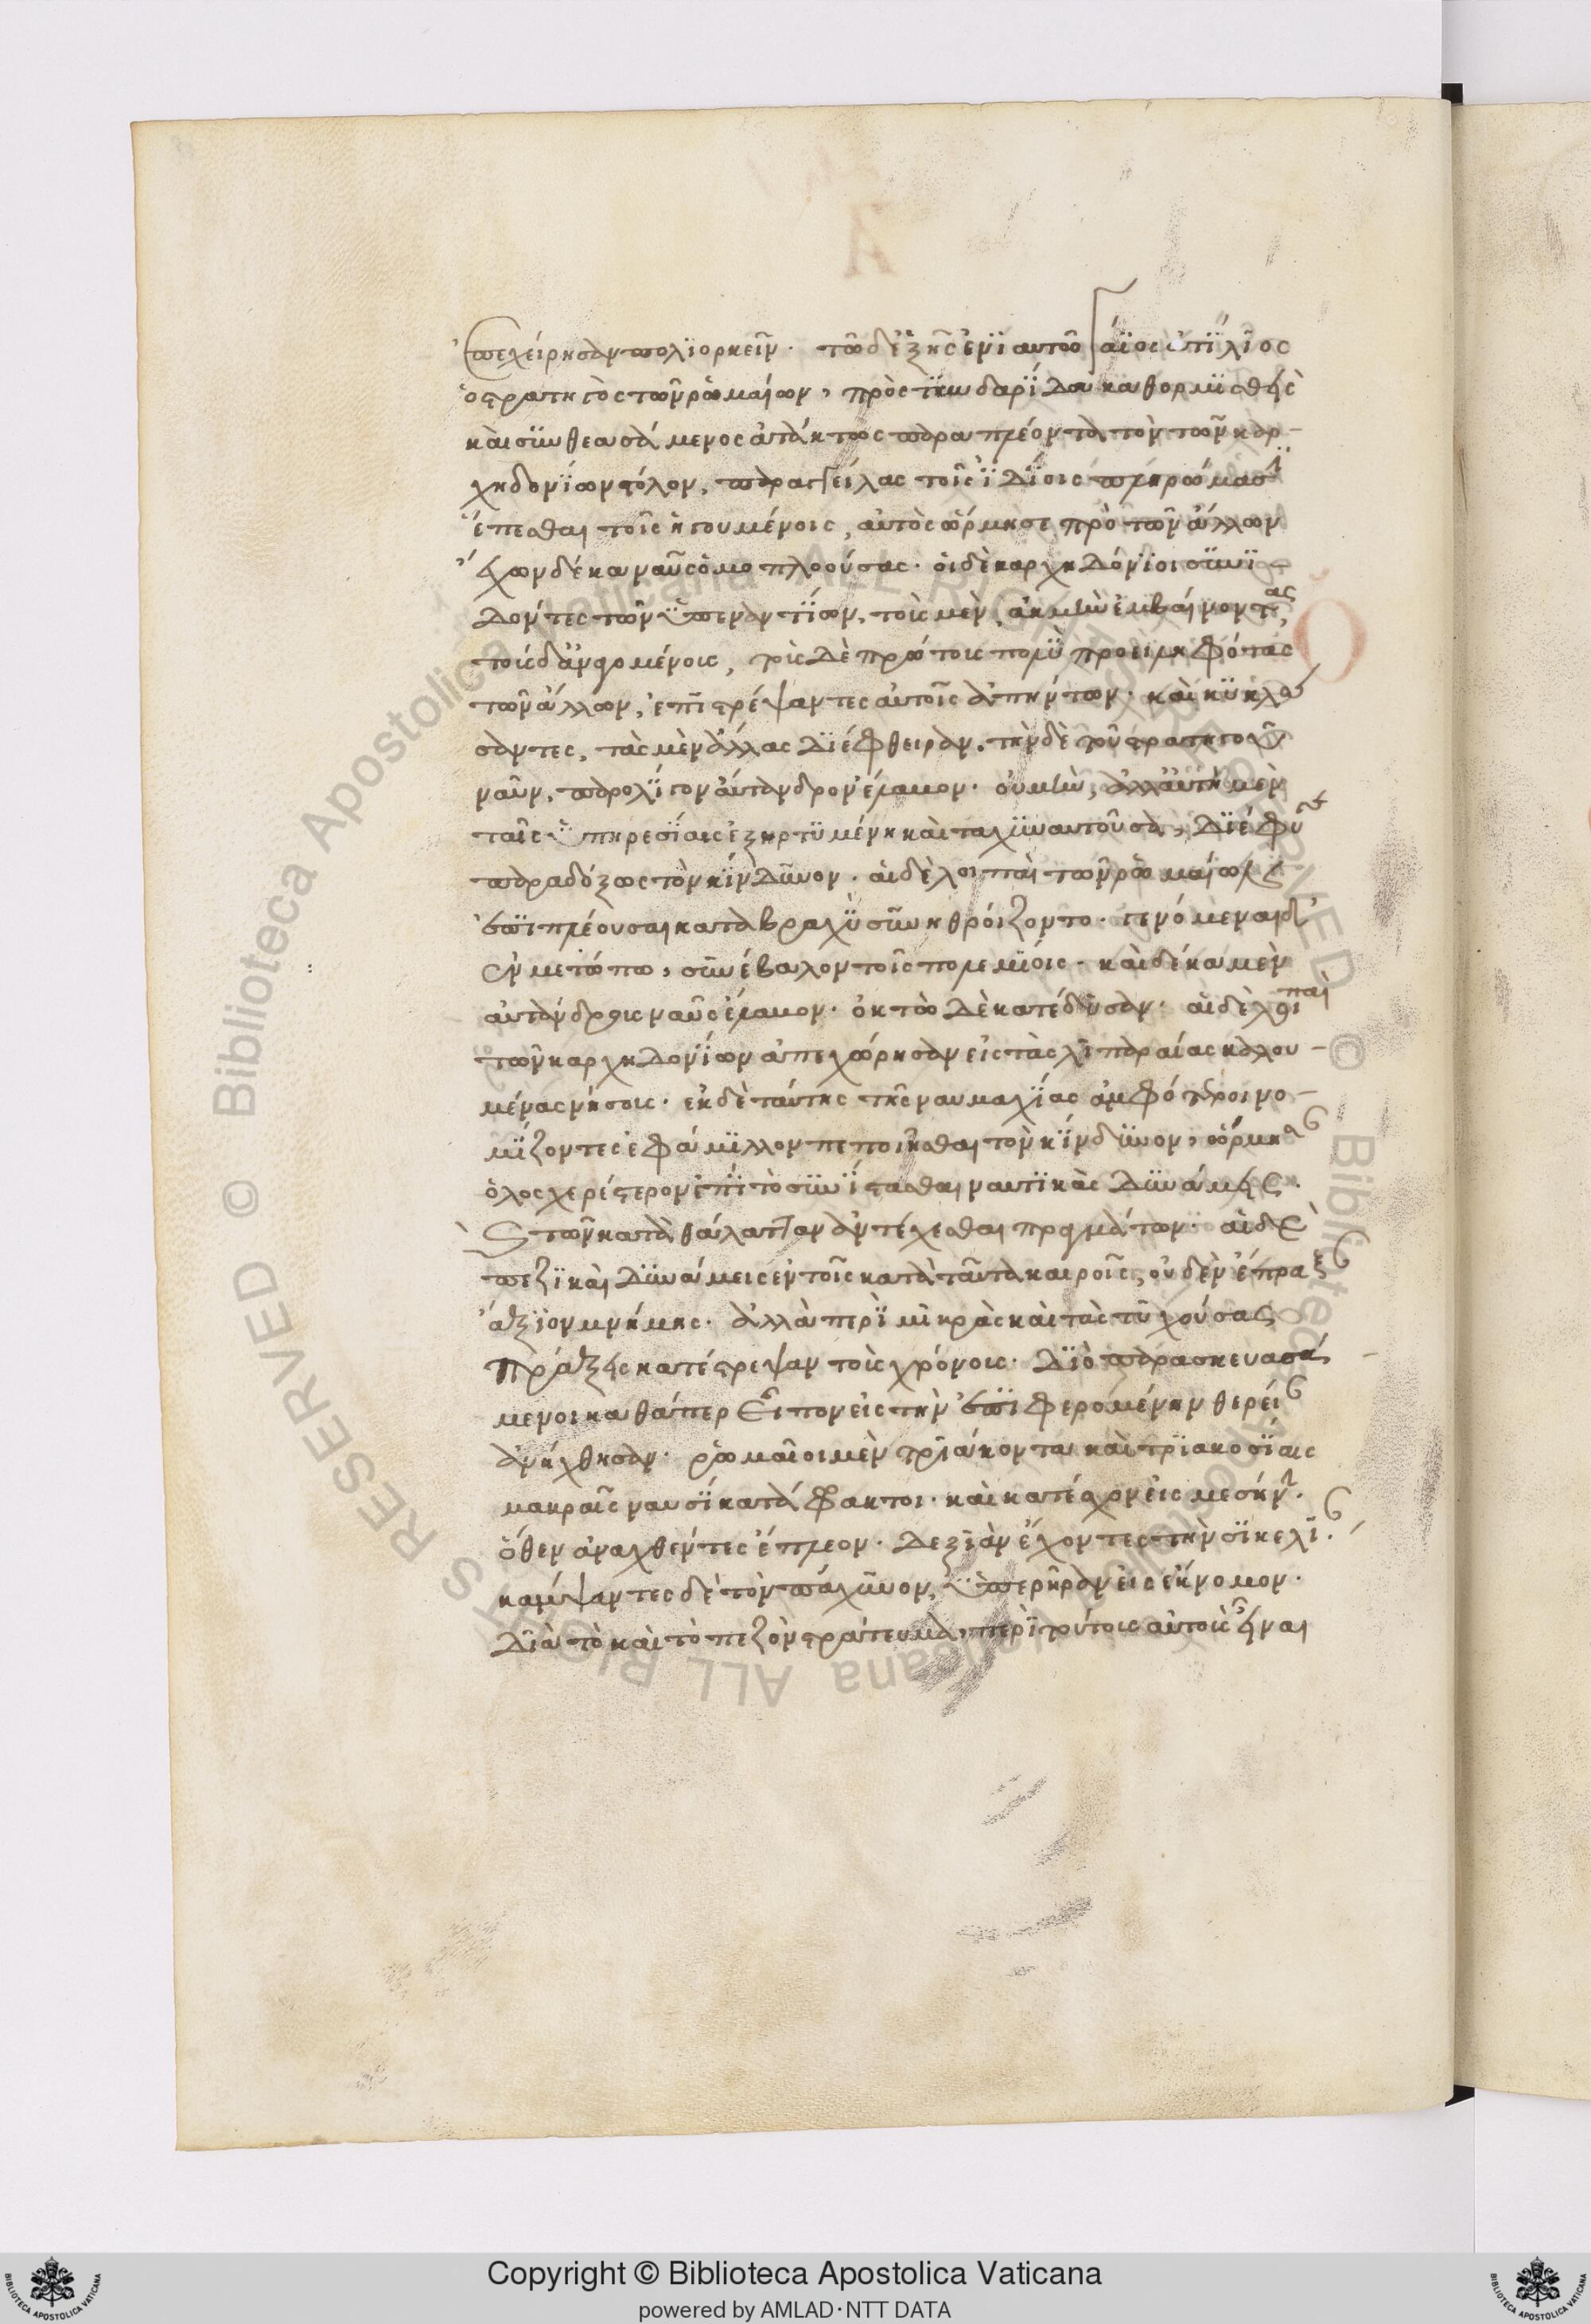 ἐπεχείρησαν πολιορκεῖν· τῶ δ' ἑξῆς ἐνιαυτῶ γάϊος ἀτίλιος
ὁ στρατηγὸς τῶν ῥωμαίων, πρὸς τυνδαρίδα καθορμισθεὶς
καὶ συνθεασάμενος ἀτάκτως παραπλέοντα τὸν τῶν καρ-
χηδονίων στόλον, παραγγείλας τοῖς ἰδίοις πληρώμασι
ἕπεσθαι τοῖς ἡγουμένοις, αὐτὸς ὥρμησε πρὸ τῶν ἄλλων
ἔχων δέκα ναῦς ὁμοπλοούσας· οἱ δὲ καρχηδόνιοι συνι-
δόντες τῶν ὑπεναντίων, τοὺς μὲν ἀκμὴν ἐμβαίνοντας,
τοὺς δ' ἀναγομένους, τοὺς δὲ πρώτους πολὺ προειληφότας
τῶν ἄλλων, ἐπιστρέψαντες αὐτοῖς ἀπήντων· καὶ κυκλώ
σαντες, τὰς μὲν ἄλλας διέφθειραν. τὴν δὲ τοῦ στρατηγοῦ
ναῦν, παρ' ὀλίγον αὔτανδρον ἔλαβον· οὐ μὴν, ἀλλ' αὕτη μὲν
ταῖς ὑπηρεσίαις ἐξηρτυμένη καὶ ταχυναυτοῦσα, διέφυγε
παραδόξως τὸν κίνδυνον· αἱ δὲ λοιπαὶ τῶν ῥωμαίων
ἐπιπλέουσαι κατὰ βραχὺ συνηθροίζοντο· γενόμεναι δ'
ἐν μετώπω, συνέβαλον τοῖς πολεμίοις· καὶ δέκα μὲν
αὐτάνδρους ναῦς ἔλαβον· ὀκτὼ δὲ κατέδυσαν· αἱ δὲ λοιπαὶ
τῶν καρχηδονίων ἀπεχώρησαν εἰς τὰς λιπαραίας καλου-
μένας νήσους· ἐκ δὲ ταύτης τῆς ναυμαχίας ἀμφότεροι νο-
μίζοντες ἐφάμιλλον πεποιῆσθαι τὸν κίνδυνον, ὥρμησαν
ὁλοσχερέστερον ἐπὶ τὸ συνίστασθαι ναυτικὰς δυνάμεις·
καὶ τῶν κατὰ θάλατταν ἀντέχεσθαι πραγμάτων· αἱ δὲ
πεζικαὶ δυνάμεις ἐν τοῖς κατὰ ταῦτα καιροῖς, οὐδὲν ἔπραξαν
ἄξιον μνήμης· ἀλλὰ περὶ μικρὰς καὶ τὰς τυχούσας
πράξεις κατέστρεψαν τοὺς χρόνους· διὸ παρασκευασά
μενοι καθάπερ εἶπον εἰς τὴν ἐπιφερομένην θερείαν
ἀνήχθησαν· ῥωμαῖοι μὲν τριάκοντα καὶ τριακοσίαις
μακραῖς ναυσὶ καταφράκτοις· καὶ κατέσχον εἰς μεσήνην·
ὅθεν ἀναχθέντες ἔπλεον· δεξιὰν ἔχοντες τὴν σικελίαν·
κάμψαντες δὲ τὸν πάχυνον, ὑπερῆραν εἰς ἔκνομον·
διὰ τὸ καὶ τὸ πεζὸν στράτευμα, περὶ τούτους αὐτοὺς εἶναι
Copyright © Biblioteca Apostolica Vaticana
powered by AMLAD·NTT DATA